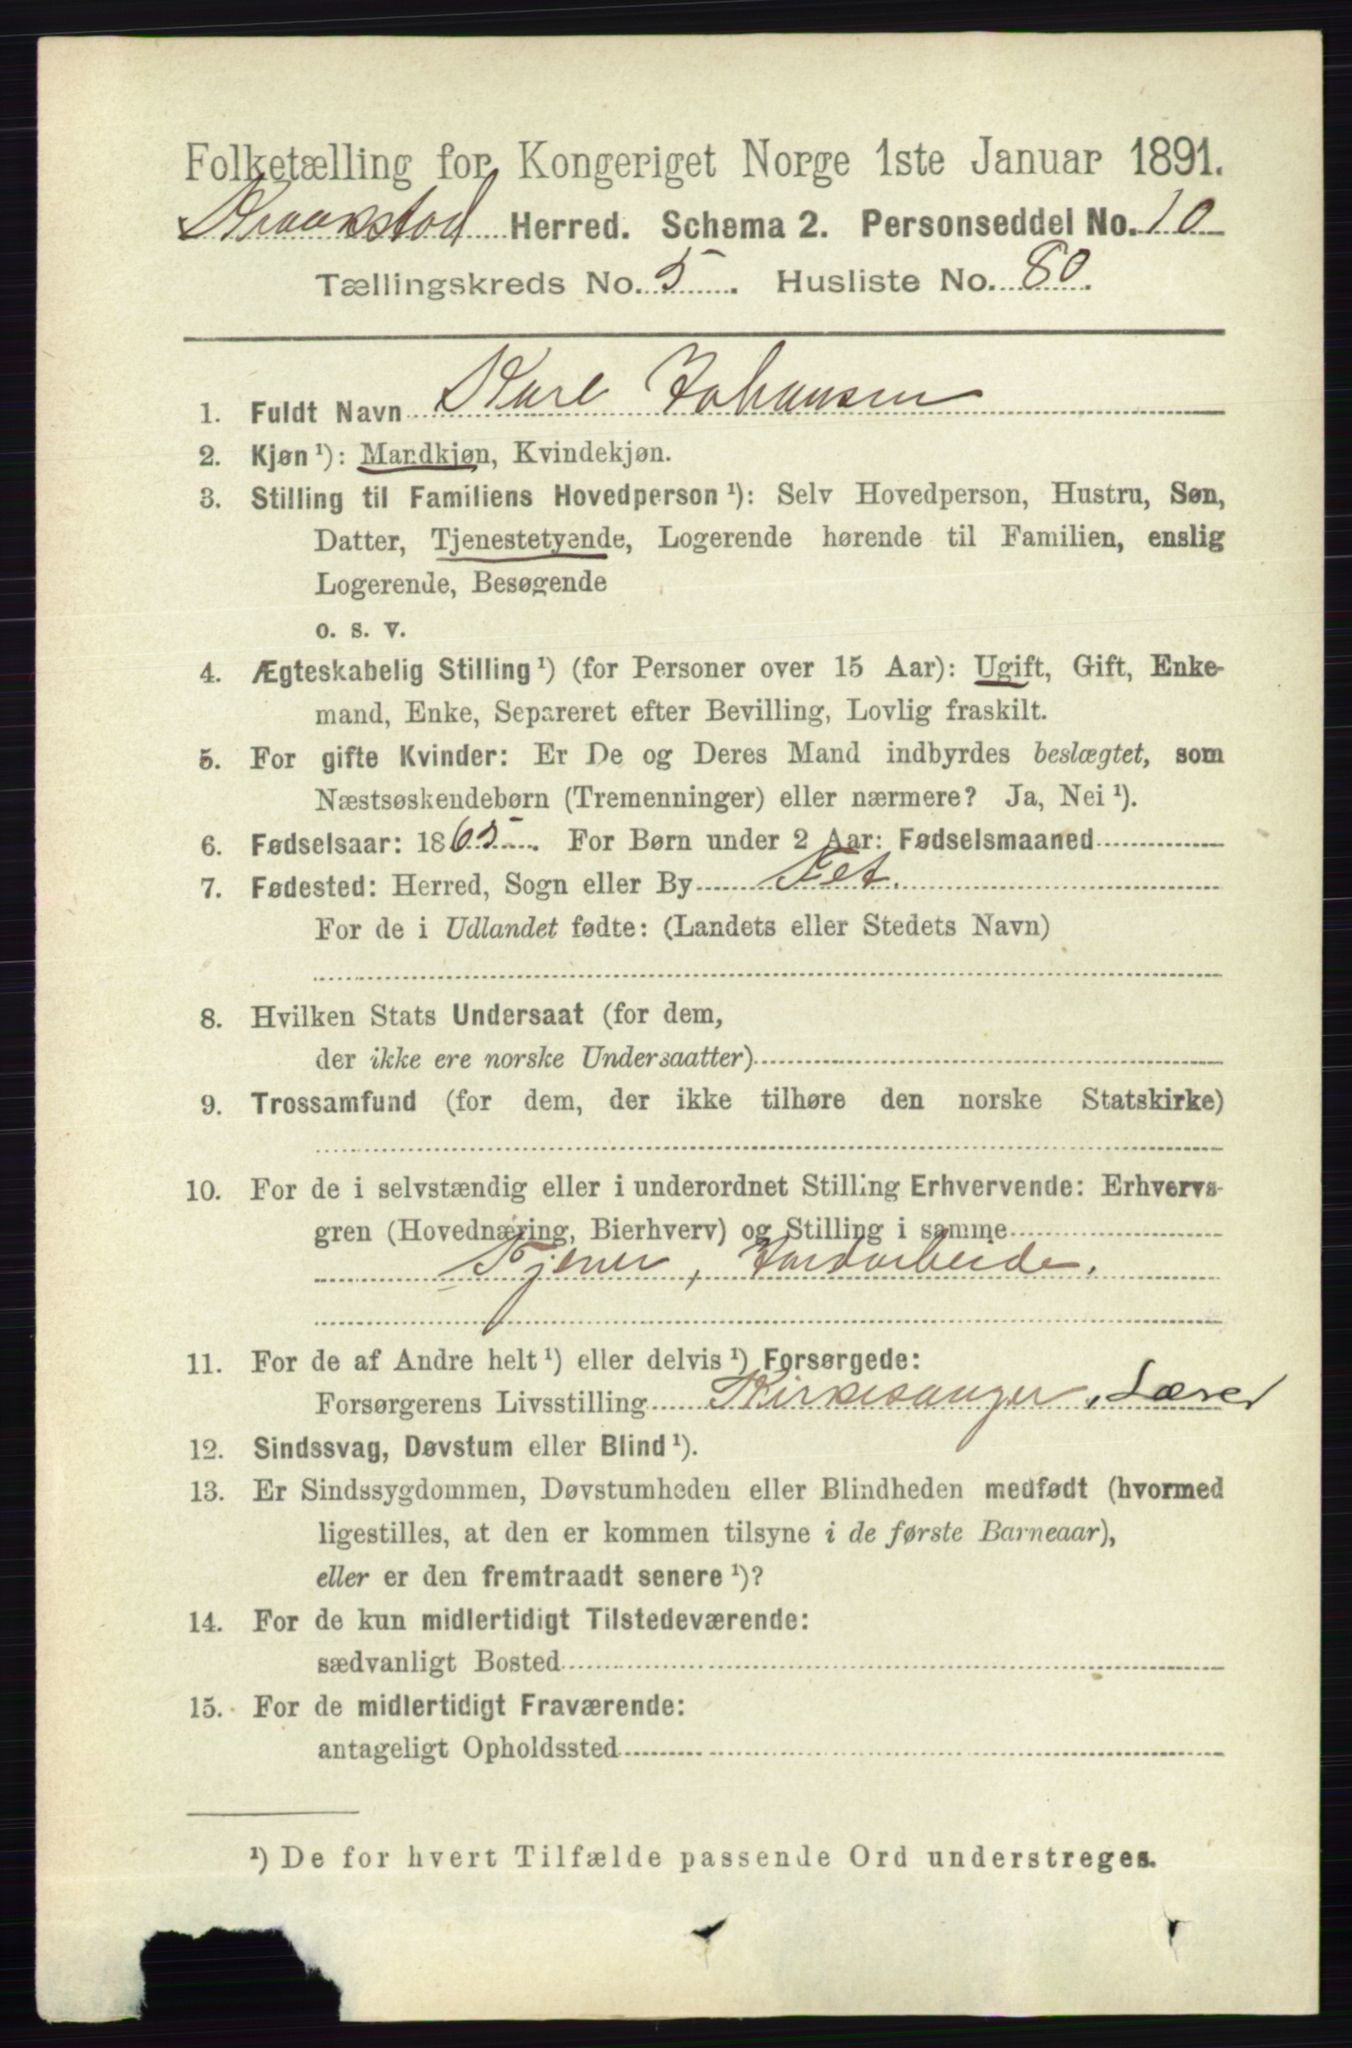 Folketælling for Kongeriget Norge 1ste Januar 1891.
Kraakstad Herred. Schema 2. Personseddel No. 10
Tællingskreds No. 5. Husliste No. 80.
1. Fuldt Navn Karl Johansen
2. Kjøn ¹): Mandkjøn, Kvindekjøn.
3. Stilling til Familiens Hovedperson ¹): Selv Hovedperson, Hustru, Søn,
Datter, Tjenestetyende, Logerende hørende til Familien, enslig
Logerende, Besøgende
o. s. v.
4. Ægteskabelig Stilling ¹) (for Personer over 15 Aar): Ugift, Gift, Enke-
mand, Enke, Separeret efter Bevilling, Lovlig fraskilt.
5. For gifte Kvinder: Er De og Deres Mand indbyrdes beslægtet, som
Næstsøskendebørn (Tremenninger) eller nærmere? Ja, Nei ¹).
6. Fødselsaar: 1865. For Børn under 2 Aar: Fødselsmaaned
7. Fødested: Herred, Sogn eller By Fet.
For de i Udlandet fødte: (Landets eller Stedets Navn)
8. Hvilken Stats Undersaat (for dem,
der ikke ere norske Undersaatter)
9. Trossamfund (for dem, der ikke tilhøre den norske Statskirke)
10. For de i selvstændig eller i underordnet Stilling Erhvervende: Erhvervs-
gren (Hovednæring, Bierhverv) og Stilling i samme
Tjener, Jordarbeide.
11. For de af Andre helt ¹) eller delvis ¹) Forsørgede:
Forsørgerens Livsstilling Kirkesanger, Lærer
12. Sindssvag, Døvstum eller Blind ¹).
13. Er Sindssygdommen, Døvstumheden eller Blindheden medfødt (hvormed
ligestilles, at den er kommen tilsyne i de første Barneaar),
eller er den fremtraadt senere ¹)?
14. For de kun midlertidigt Tilstedeværende:
sædvanligt Bosted
15. For de midlertidigt Fraværende:
antageligt Opholdssted
¹) De for hvert Tilfælde passende Ord understreges.